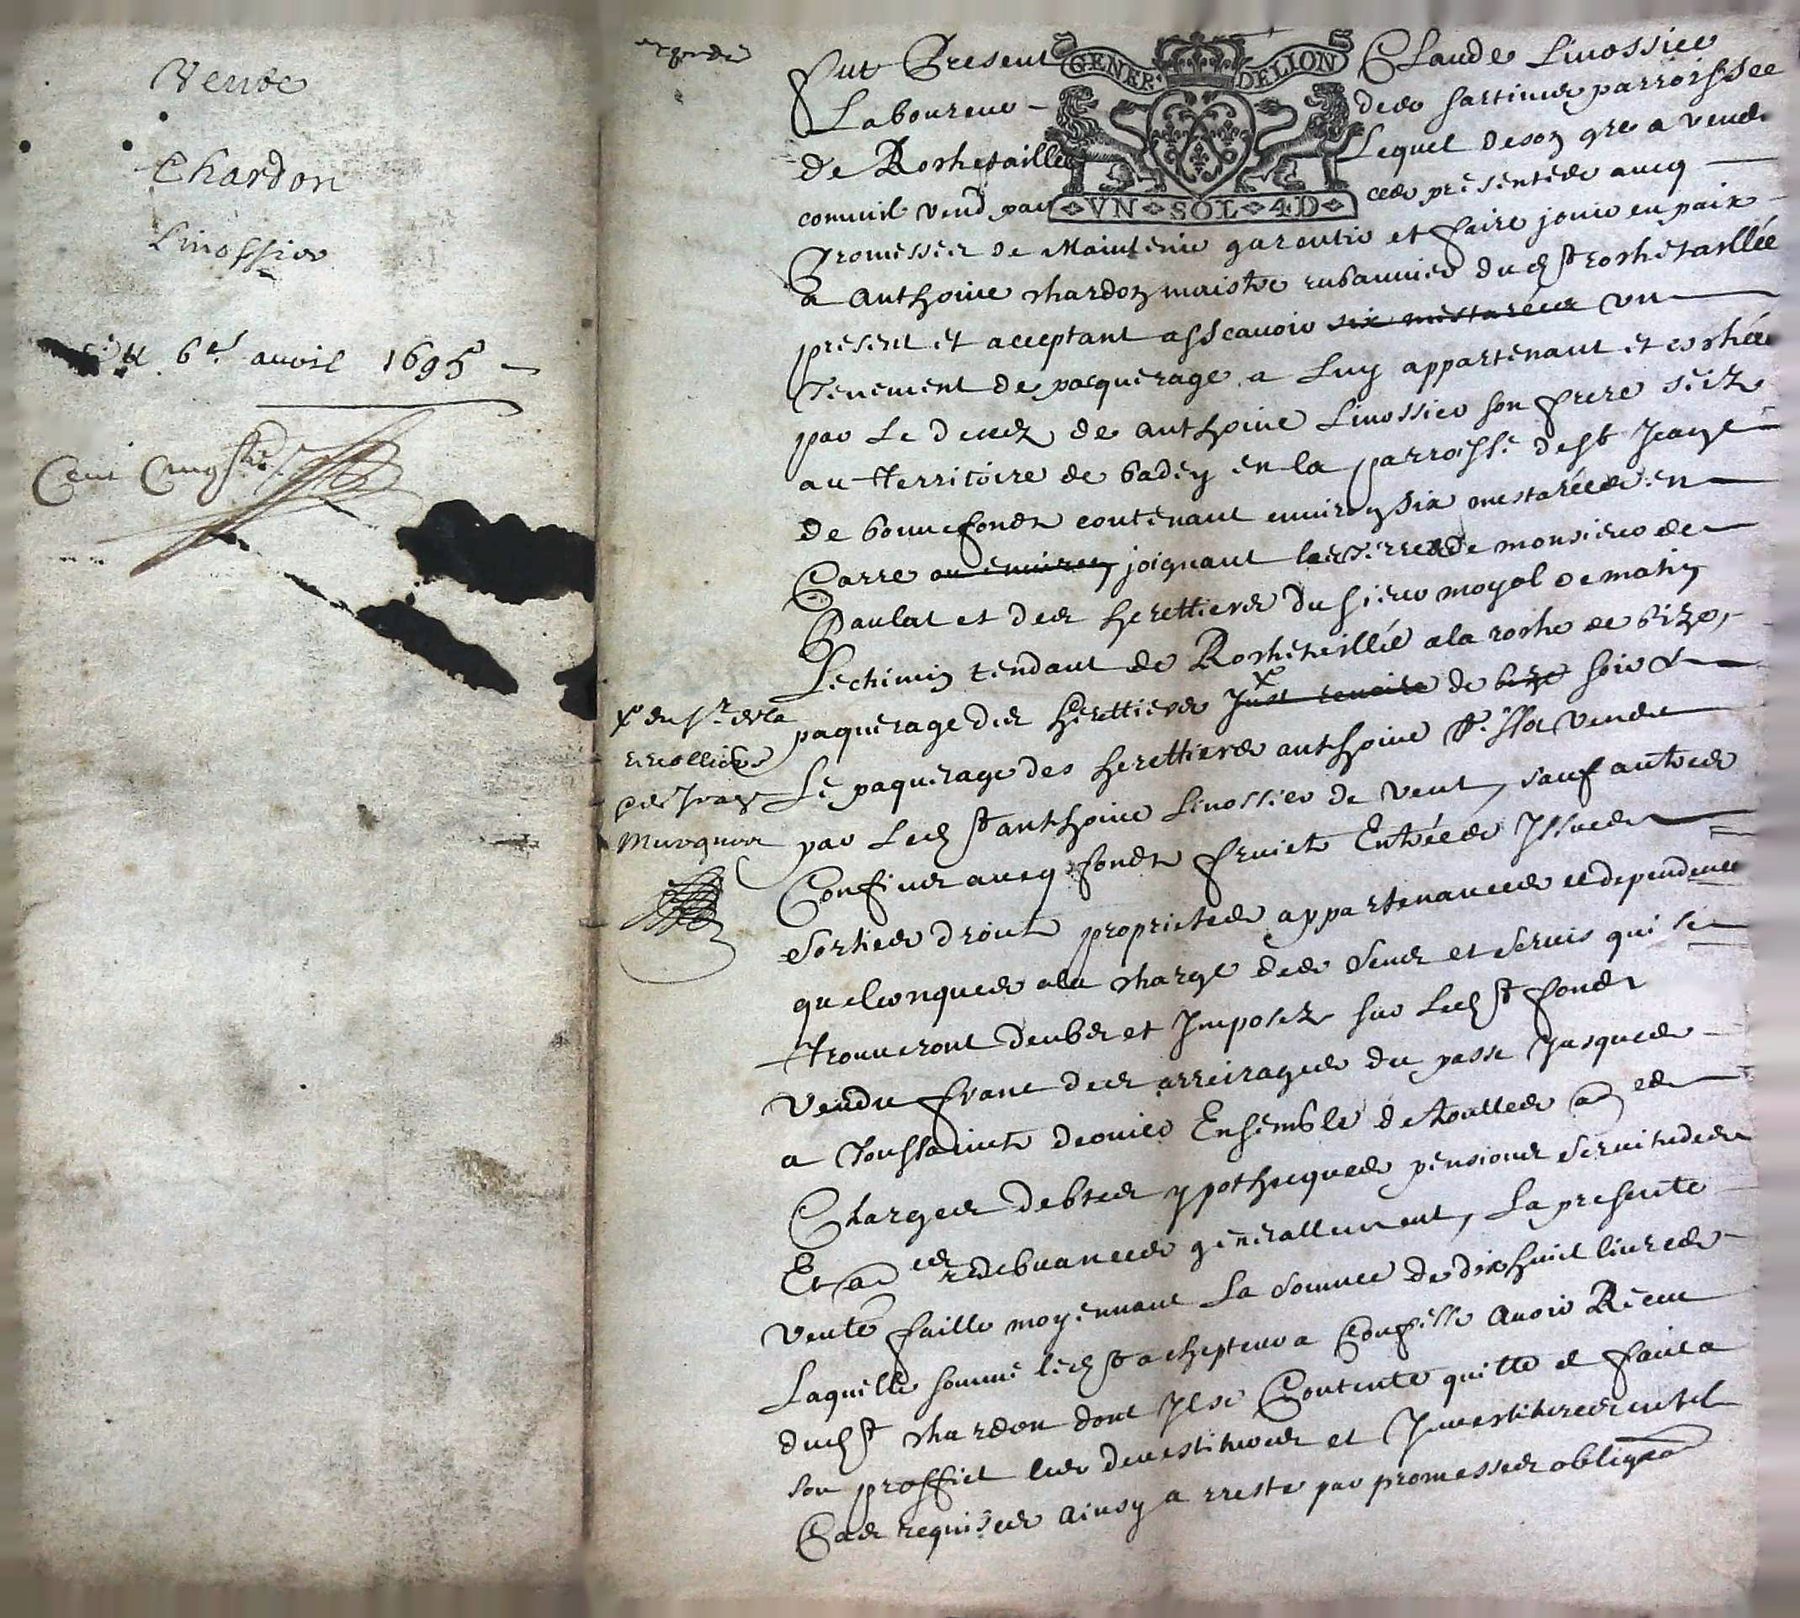 Vente
Chardon
Linossier
6e avril 1695
Fut Present Claude Linossier
GENER DELION
Laboureur des sartines parroisse
de Rochetaillee Lequel deson gre a vendu
comme vend par ces presentes aucq
VN SOL 4D
Promesses de Maintenir garentir et faire jouir en paix
a Anthoine chardon maistre rubannier dud st rochetaillée
present et acceptant assçavoir six mestarées un
Tenement de pacquerage a Luy appartenant et
par Le decez de anthoine Linossier son frere seiz
au Territoire de badey en la parroisse de st Jean
de bonnefondz contenant environ six mestarées en
Carre ou environ joignant les terres de monsieur de
Paulat et des herettiers du sieur moyol de matin
Le chimin tendant de Rochetaillée a la roche de bize,
paquerage des herettiers de bize soir &
x du sr
Le paquerage des herettiers anthoine vende
de Jean
par Led st anthoine Linossier de vent, sauf autres
Murgues
Confines avecq fondz fruictz Entrées Issues
Sorties droictz proprietes appartenances et dependences
quelconques a la charge des sens et servis qui se
trouveront deubz et Imposez sur Led st fondz
Vendu franc des arreirages du passe Jusques
a Toussainctz dernier Ensemble de touttes aes
Charges debtes ypothecques pensions servitudes
Et aes redebvances generallement, La presente
vente faitte moyennant La somme de dix huict livres
Laquelle somme led st achepteur a Confesse avoir Receu
dud st chardon dont Il se Contente quitte et faict a
son proffict les devestitures et Investitures en tel
Cas requises ainsy a reste par promesses obligeaon